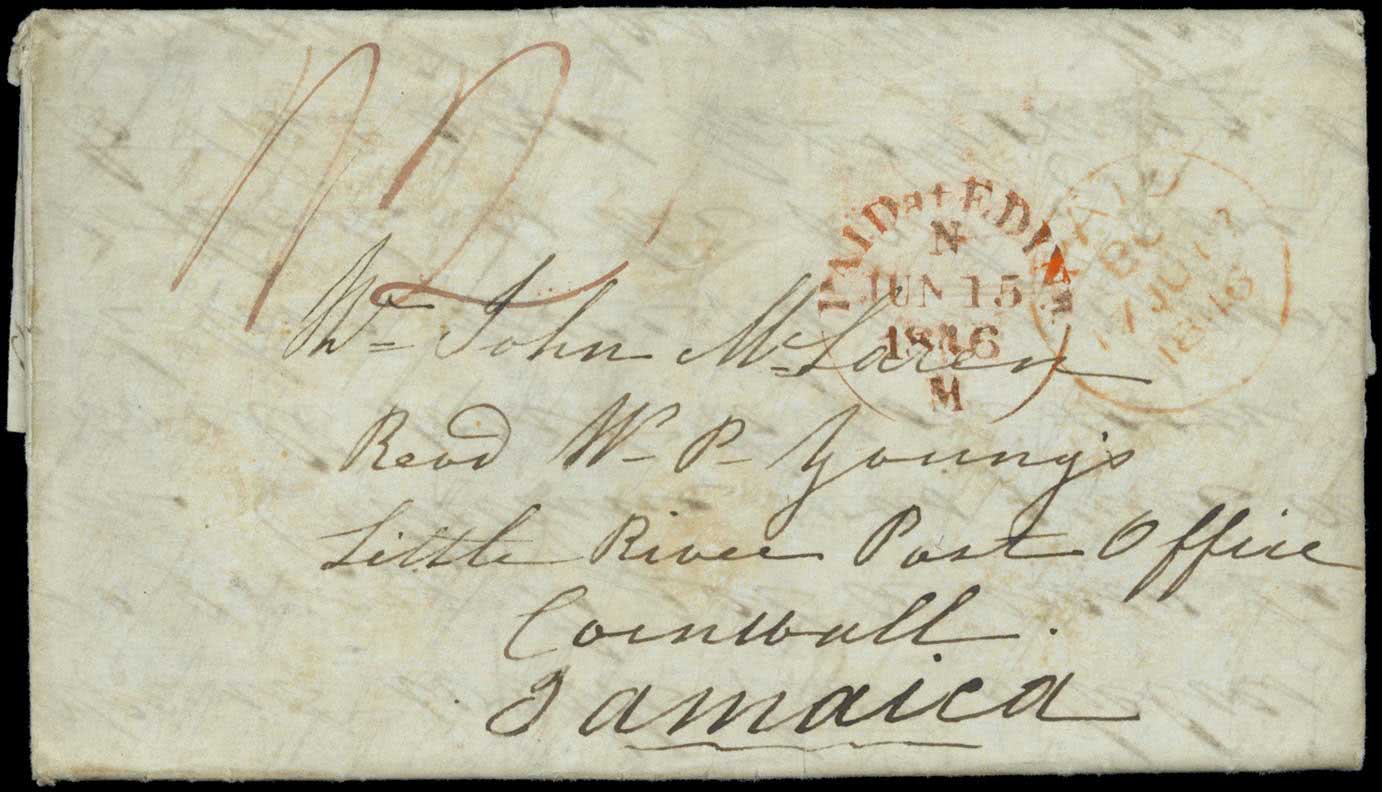 1/2
PAID at EDINR
N
JUN 15
1846
M
PAID
17 JU 17
1846
Mr John McLaren
Revd Wm P. Young's
Little River Post Office
Cornwall.
Jamaica